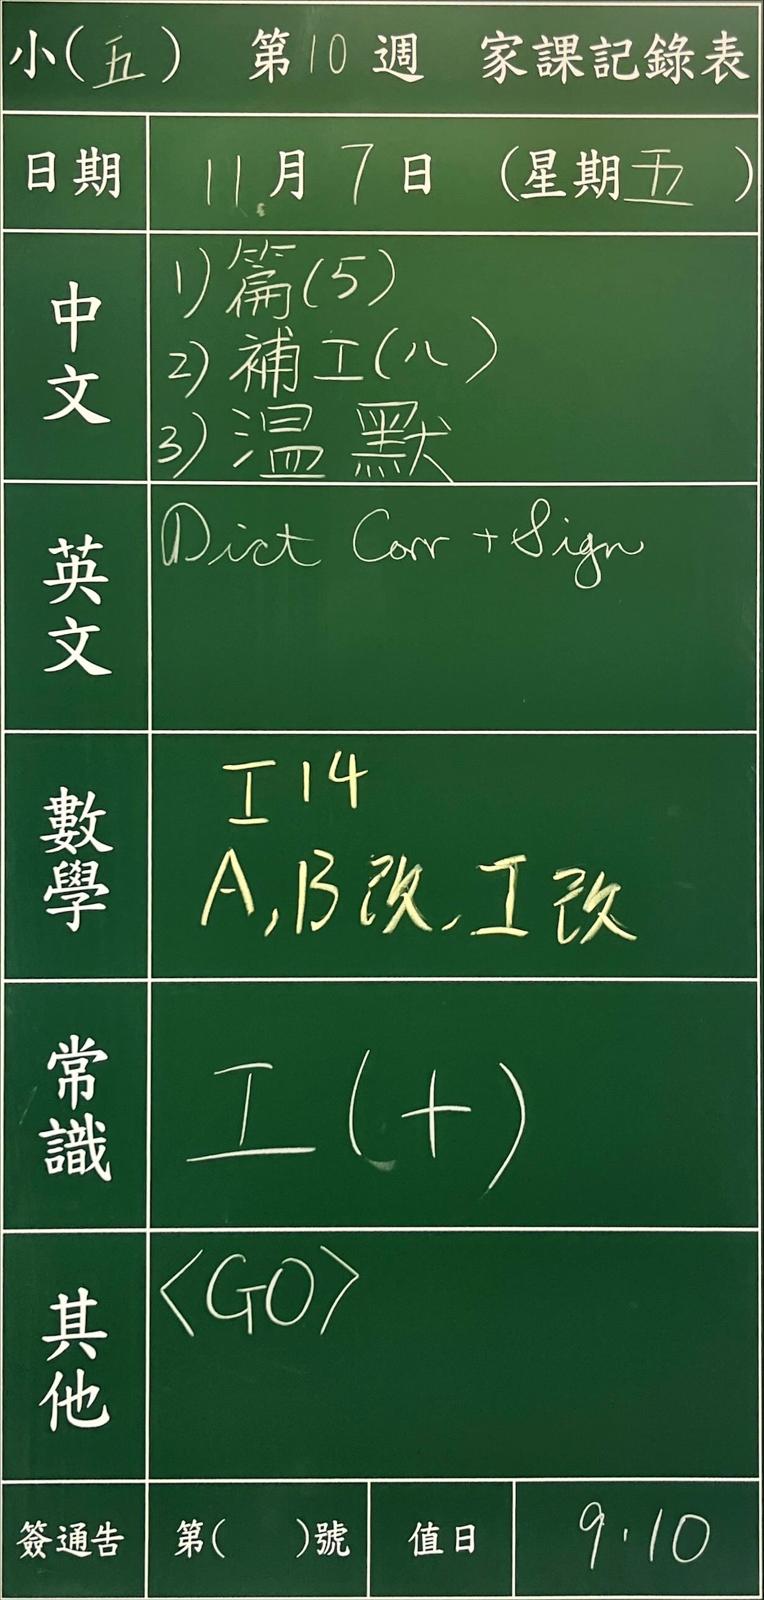 小(五) 第10週 家課記錄表
日期 11月7日 (星期五)
中文
1) 篇(5)
2) 補工(八)
3) 温默
英文
①Dict Corr + Sign
數學
工14
A, B改, 工改
常識
工(十)
其他
<GO>
簽通告 第( )號 值日 9.10